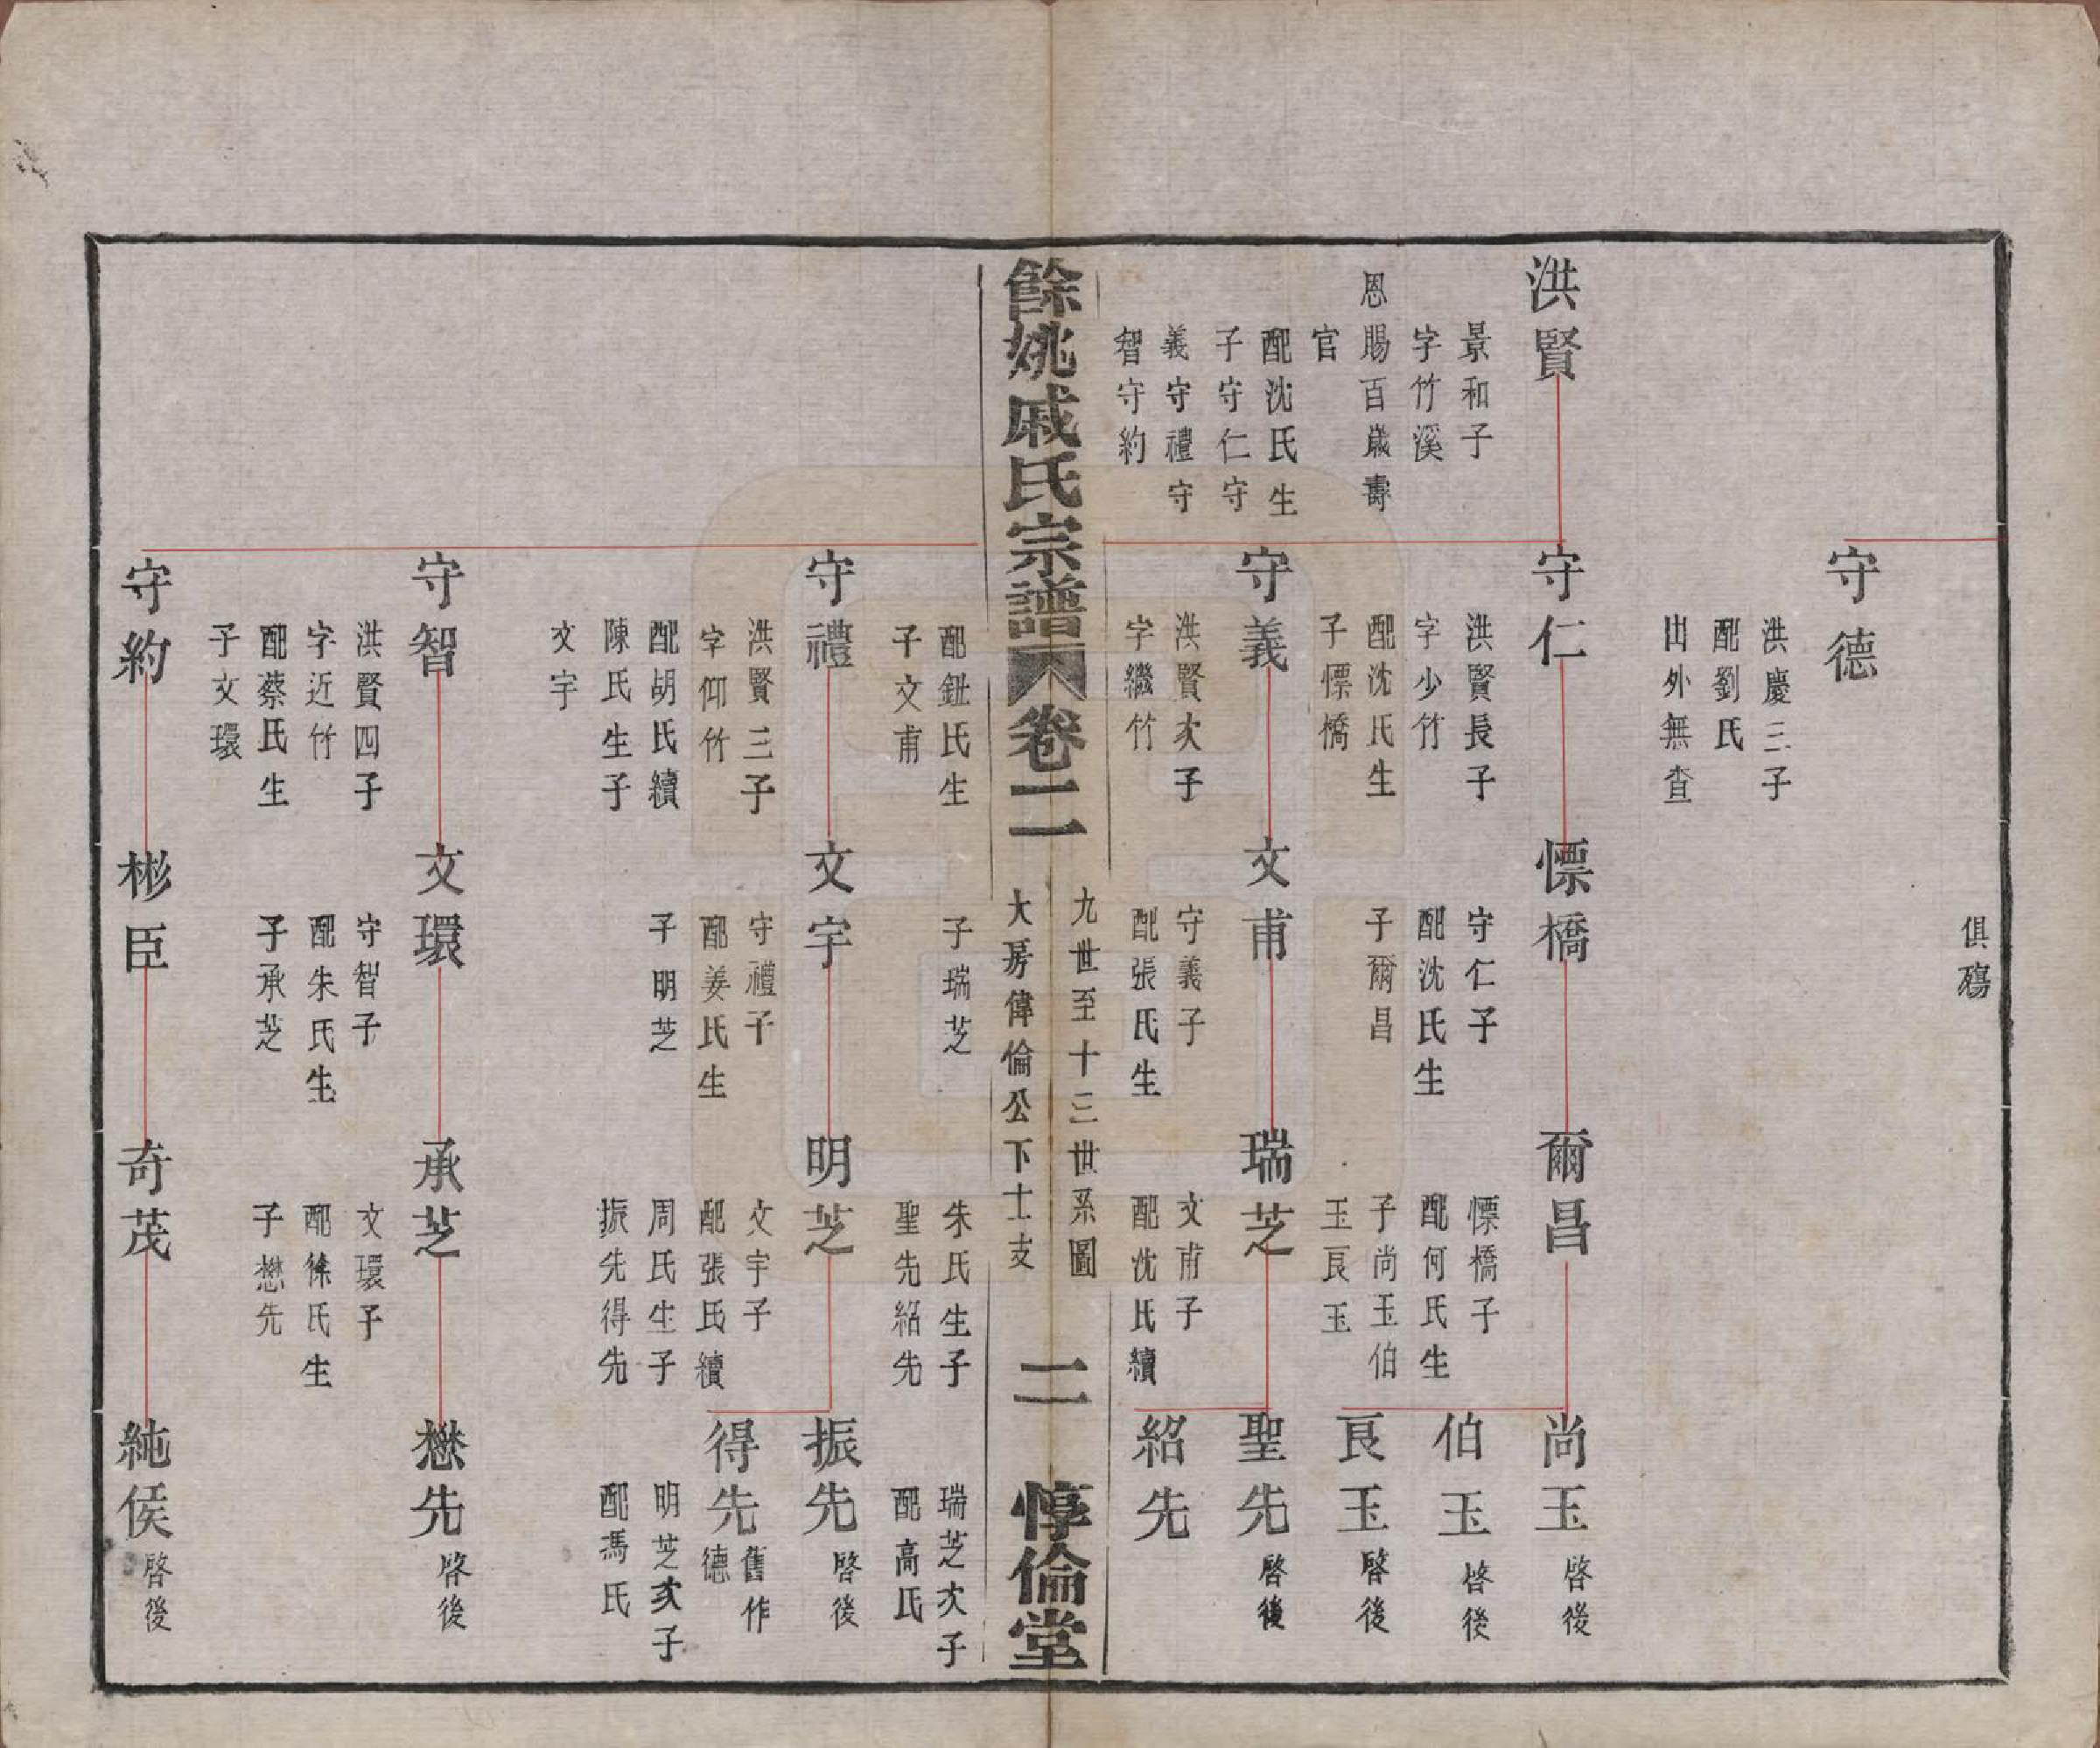 俱殤
守德
洪慶三子
配劉氏
出外無查
洪賢
景和子
字竹溪
恩賜百歲壽
官
配沈氏生
子守仁守
義守禮守
智守約
守仁
洪賢長子
字少竹
配沈氏生
子慓橋
慓橋
守仁子
配沈氏生
子爾昌
爾昌
慓橋子
配何氏生
子尚玉伯
玉良玉
尚玉啓後
伯玉啓後
良玉啓後
守義
洪賢次子
字繼竹
文甫
守義子
配張氏生
瑞芝
文甫子
配沈氏續
聖先啓後
紹先
餘姚戚氏宗譜 卷二
九世至十三世系圖
大房偉倫公下士支
二
惇倫堂
配鈕氏生
子文甫
子瑞芝
朱氏生子
聖先紹先
瑞芝次子
配高氏
守禮
洪賢三子
字仰竹
配胡氏續
陳氏生子
文宇
文宇
守禮子
配姜氏生
子明芝
明芝
文宇子
配張氏續
周氏生子
振先得先
振先啓後
得先舊作德
明芝次子
配馮氏
守智
洪賢四子
字近竹
配蔡氏生
子文環
文環
守智子
配朱氏生
子承芝
承芝
文環子
配徐氏生
子懋先
懋先啓後
守約
彬臣
奇茂
純侯啓後